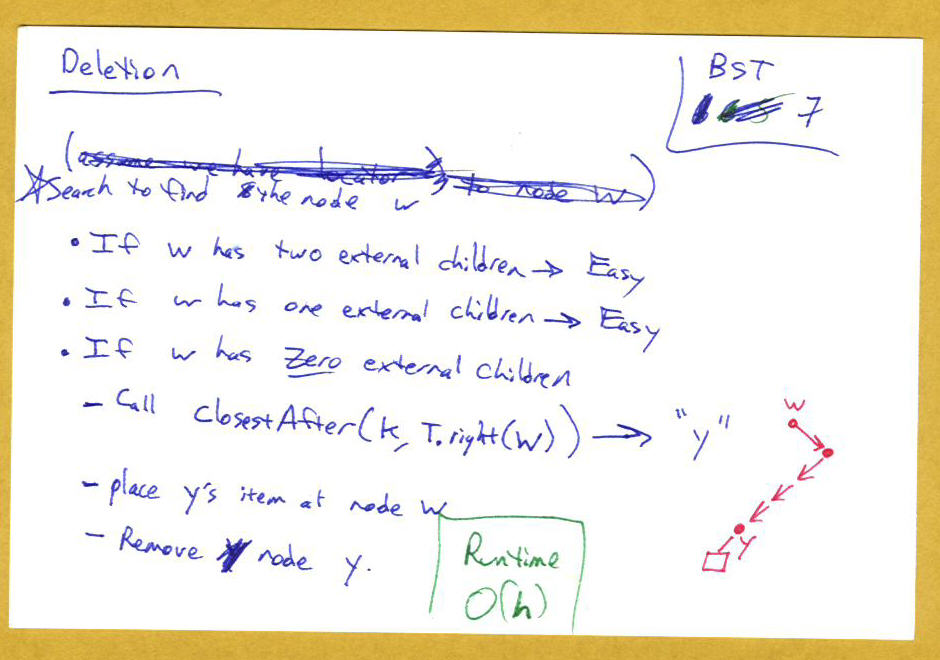 Deletion
BST
7
(assume we have locator) to node w)
*Search to find the node w
• If w has two external children → Easy
• If w has one external children → Easy
• If w has Zero external children
- Call closestAfter(k, T.right(w)) → "y"
- place y's item at node w
- Remove node y.
Runtime
O(h)
w
y